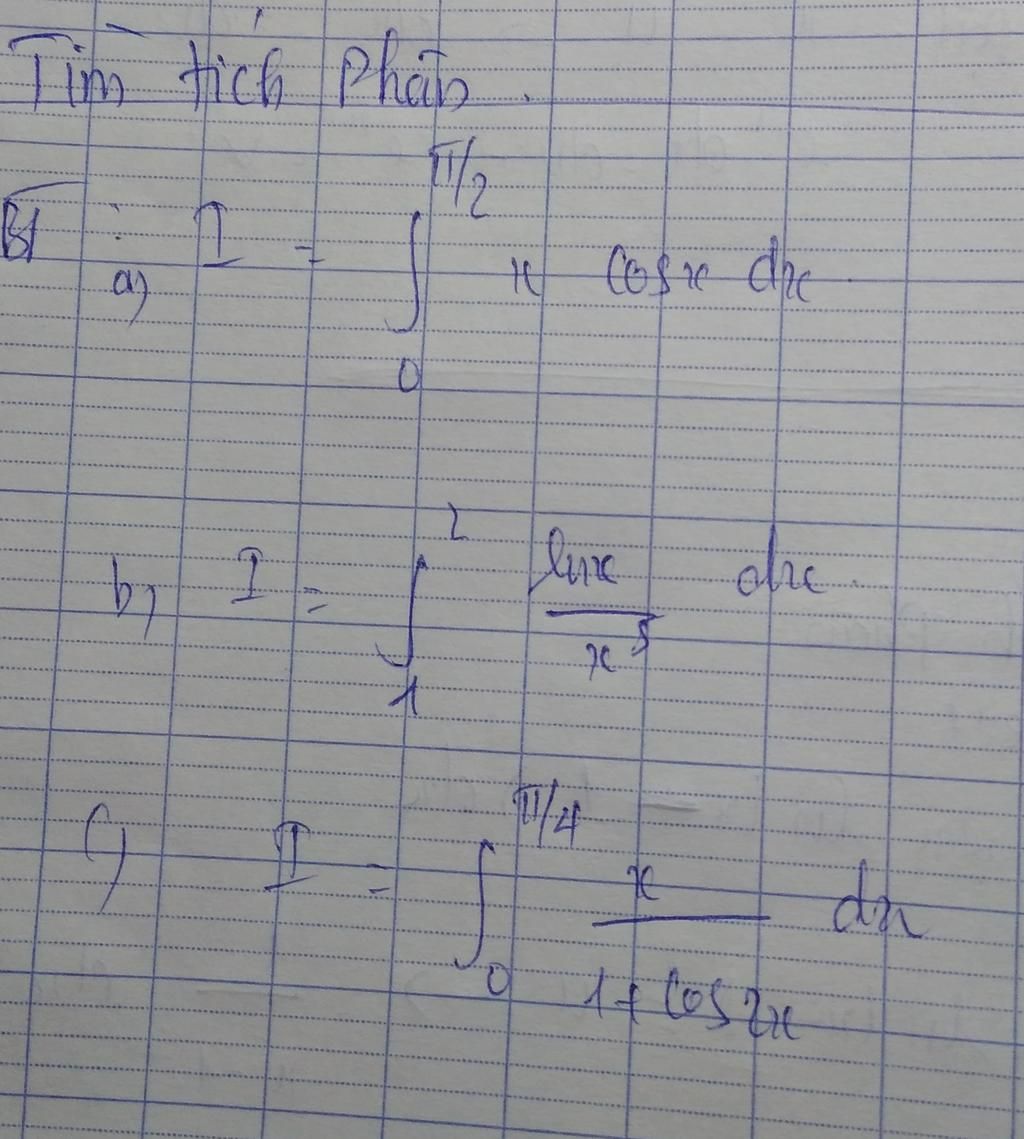 Tìm tích phân.
B1: a) I = ∫₀^{π/2} x cosx dx.
b) I = ∫₁² lnx / x⁵ dx.
c) I = ∫₀^{π/4} x / (1 + cos2x) dx